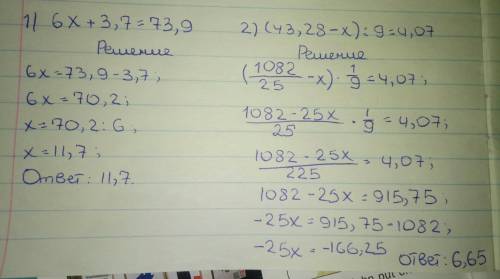 1) 6x + 3,7 = 73,9
Решение
6x = 73,9 - 3,7;
6x = 70,2;
x = 70,2 : 6;
x = 11,7;
Ответ: 11,7.
2) (43,28 - x) : 9 = 4,07
Решение
(1082/25 - x) · 1/9 = 4,07;
(1082 - 25x)/25 · 1/9 = 4,07;
(1082 - 25x)/225 = 4,07;
1082 - 25x = 915,75;
-25x = 915,75 - 1082;
-25x = -166,25
Ответ: 6,65